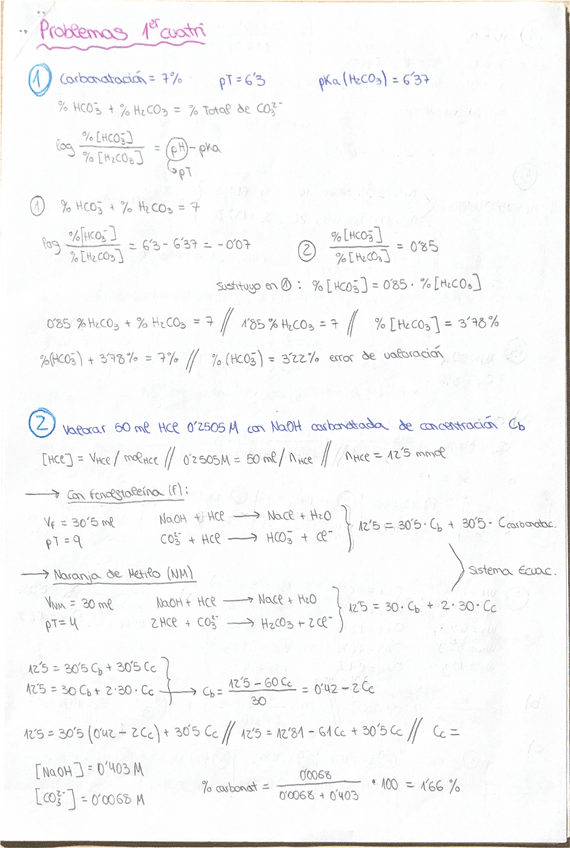 Problemas 1er cuatri
① Carbonatación = 7% pT = 6'3 pKa (H2CO3) = 6'37
% HCO3- + % H2CO3 = % Total de CO3^2-
log %[HCO3-] / %[H2CO3] = pH - pKa
pT
① % HCO3- + % H2CO3 = 7
log %[HCO3-] / %[H2CO3] = 6'3 - 6'37 = -0'07 ② %[HCO3-] / %[H2CO3] = 0'85
Sustituyo en ①: %[HCO3-] = 0'85 · %[H2CO3]
0'85 % H2CO3 + % H2CO3 = 7 // 1'85 % H2CO3 = 7 // %[H2CO3] = 3'78%
%(HCO3-) + 3'78% = 7% // %(HCO3-) = 3'22% error de valoración
② Valorar 50 ml HCl 0'2505 M con NaOH carbonatada de concentración Cb
[HCl] = VHCl / molHCl // 0'2505M = 50 ml / nHCl // nHCl = 12'5 mmol
→ Con Fenolftaleína (F):
VF = 30'5 ml NaOH + HCl → NaCl + H2O
pT = 9 CO3^2- + HCl → HCO3- + Cl- } 12'5 = 30'5 · Cb + 30'5 · Ccarbonatac.
Sistema Ecuac.
→ Naranja de Metilo (NM)
VNM = 30 ml NaOH + HCl → NaCl + H2O
pT = 4 2HCl + CO3^2- → H2CO3 + 2Cl- } 12'5 = 30 · Cb + 2 · 30 · Cc
12'5 = 30'5 Cb + 30'5 Cc
12'5 = 30 Cb + 2 · 30 · Cc } → Cb = 12'5 - 60 Cc / 30 = 0'42 - 2Cc
12'5 = 30'5 (0'42 - 2Cc) + 30'5 Cc // 12'5 = 12'81 - 61Cc + 30'5 Cc // Cc =
[NaOH] = 0'403 M
[CO3^2-] = 0'0068 M
% carbonat = 0'0068 / 0'0068 + 0'403 * 100 = 1'66 %